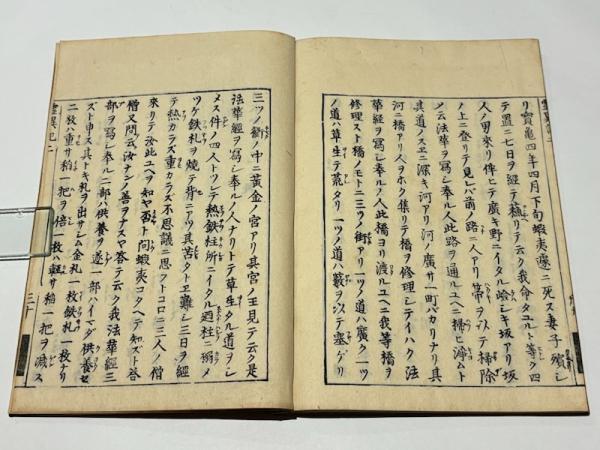 リ寳亀四年四月下旬蝦夷遽ニ死ス妻子殯シ
テ置ニ七日ヲ經テ穌リテ云ク我命タユルト等ク四
人ノ男来リ伴ヒテ廣キ野ニイタル嶮シキ坂アリ坂
ノ上ニ登リテ見レバ前ノ路ニ二人アリ箒ヲ以テ掃除
メ云法华ヲ寫シ奉ル人此路ヲ通ルユヘニ掃ヒ淨ムト
其道ノスヱニ深キ河アリ河ノ廣サ一町バカリナリ其
河ニ橋アリ人ヲホク集リテ橋ヲ修理シテイハク法
華經ヲ寫シ奉ル人此橋ヨリ渡ルユヘニ我等橋ヲ
修理スト橋ノモトニ三ツノ街アリ一ツノ道ハ廣ク一ツ
ノ道ハ草生テ荒タリ一ツノ道ハ藪ヲ以テ塞グリ
三ツノ衢ノ中ニ黄金ノ宮アリ其宮ノ王見テ云ク是
法華經ヲ寫シ奉ル人ナリトテ草生タル道ヲシ
メス件ノ四人トツレテ熱鉄柱所ニイタル廼柱ニ搦メ
ツケ鉄札ヲ焼テ背ニアツ其苦タヱ難シ三日ヲ經
テ熱カラス重カラズ不思議ニ思フトコロニ三人ノ僧
來リテ汝此ユヘヲ知ヤ否ト問蝦夷コタヘテ知ズト答
僧又問云汝ナンノ善ヲナスヤ答テ云ク我法華經三
部ヲ寫シ奉ル二部ハ供養ヲ遂一部ハイマダ供養セ
ズト申ス其トキ札ヲ出サシム金札二枚鉄札一枚ナリ
二枚ハ重サ稲一把ヲ倍一枚ハ軽サ稲一把ヲ減ス
霊異記二
三十